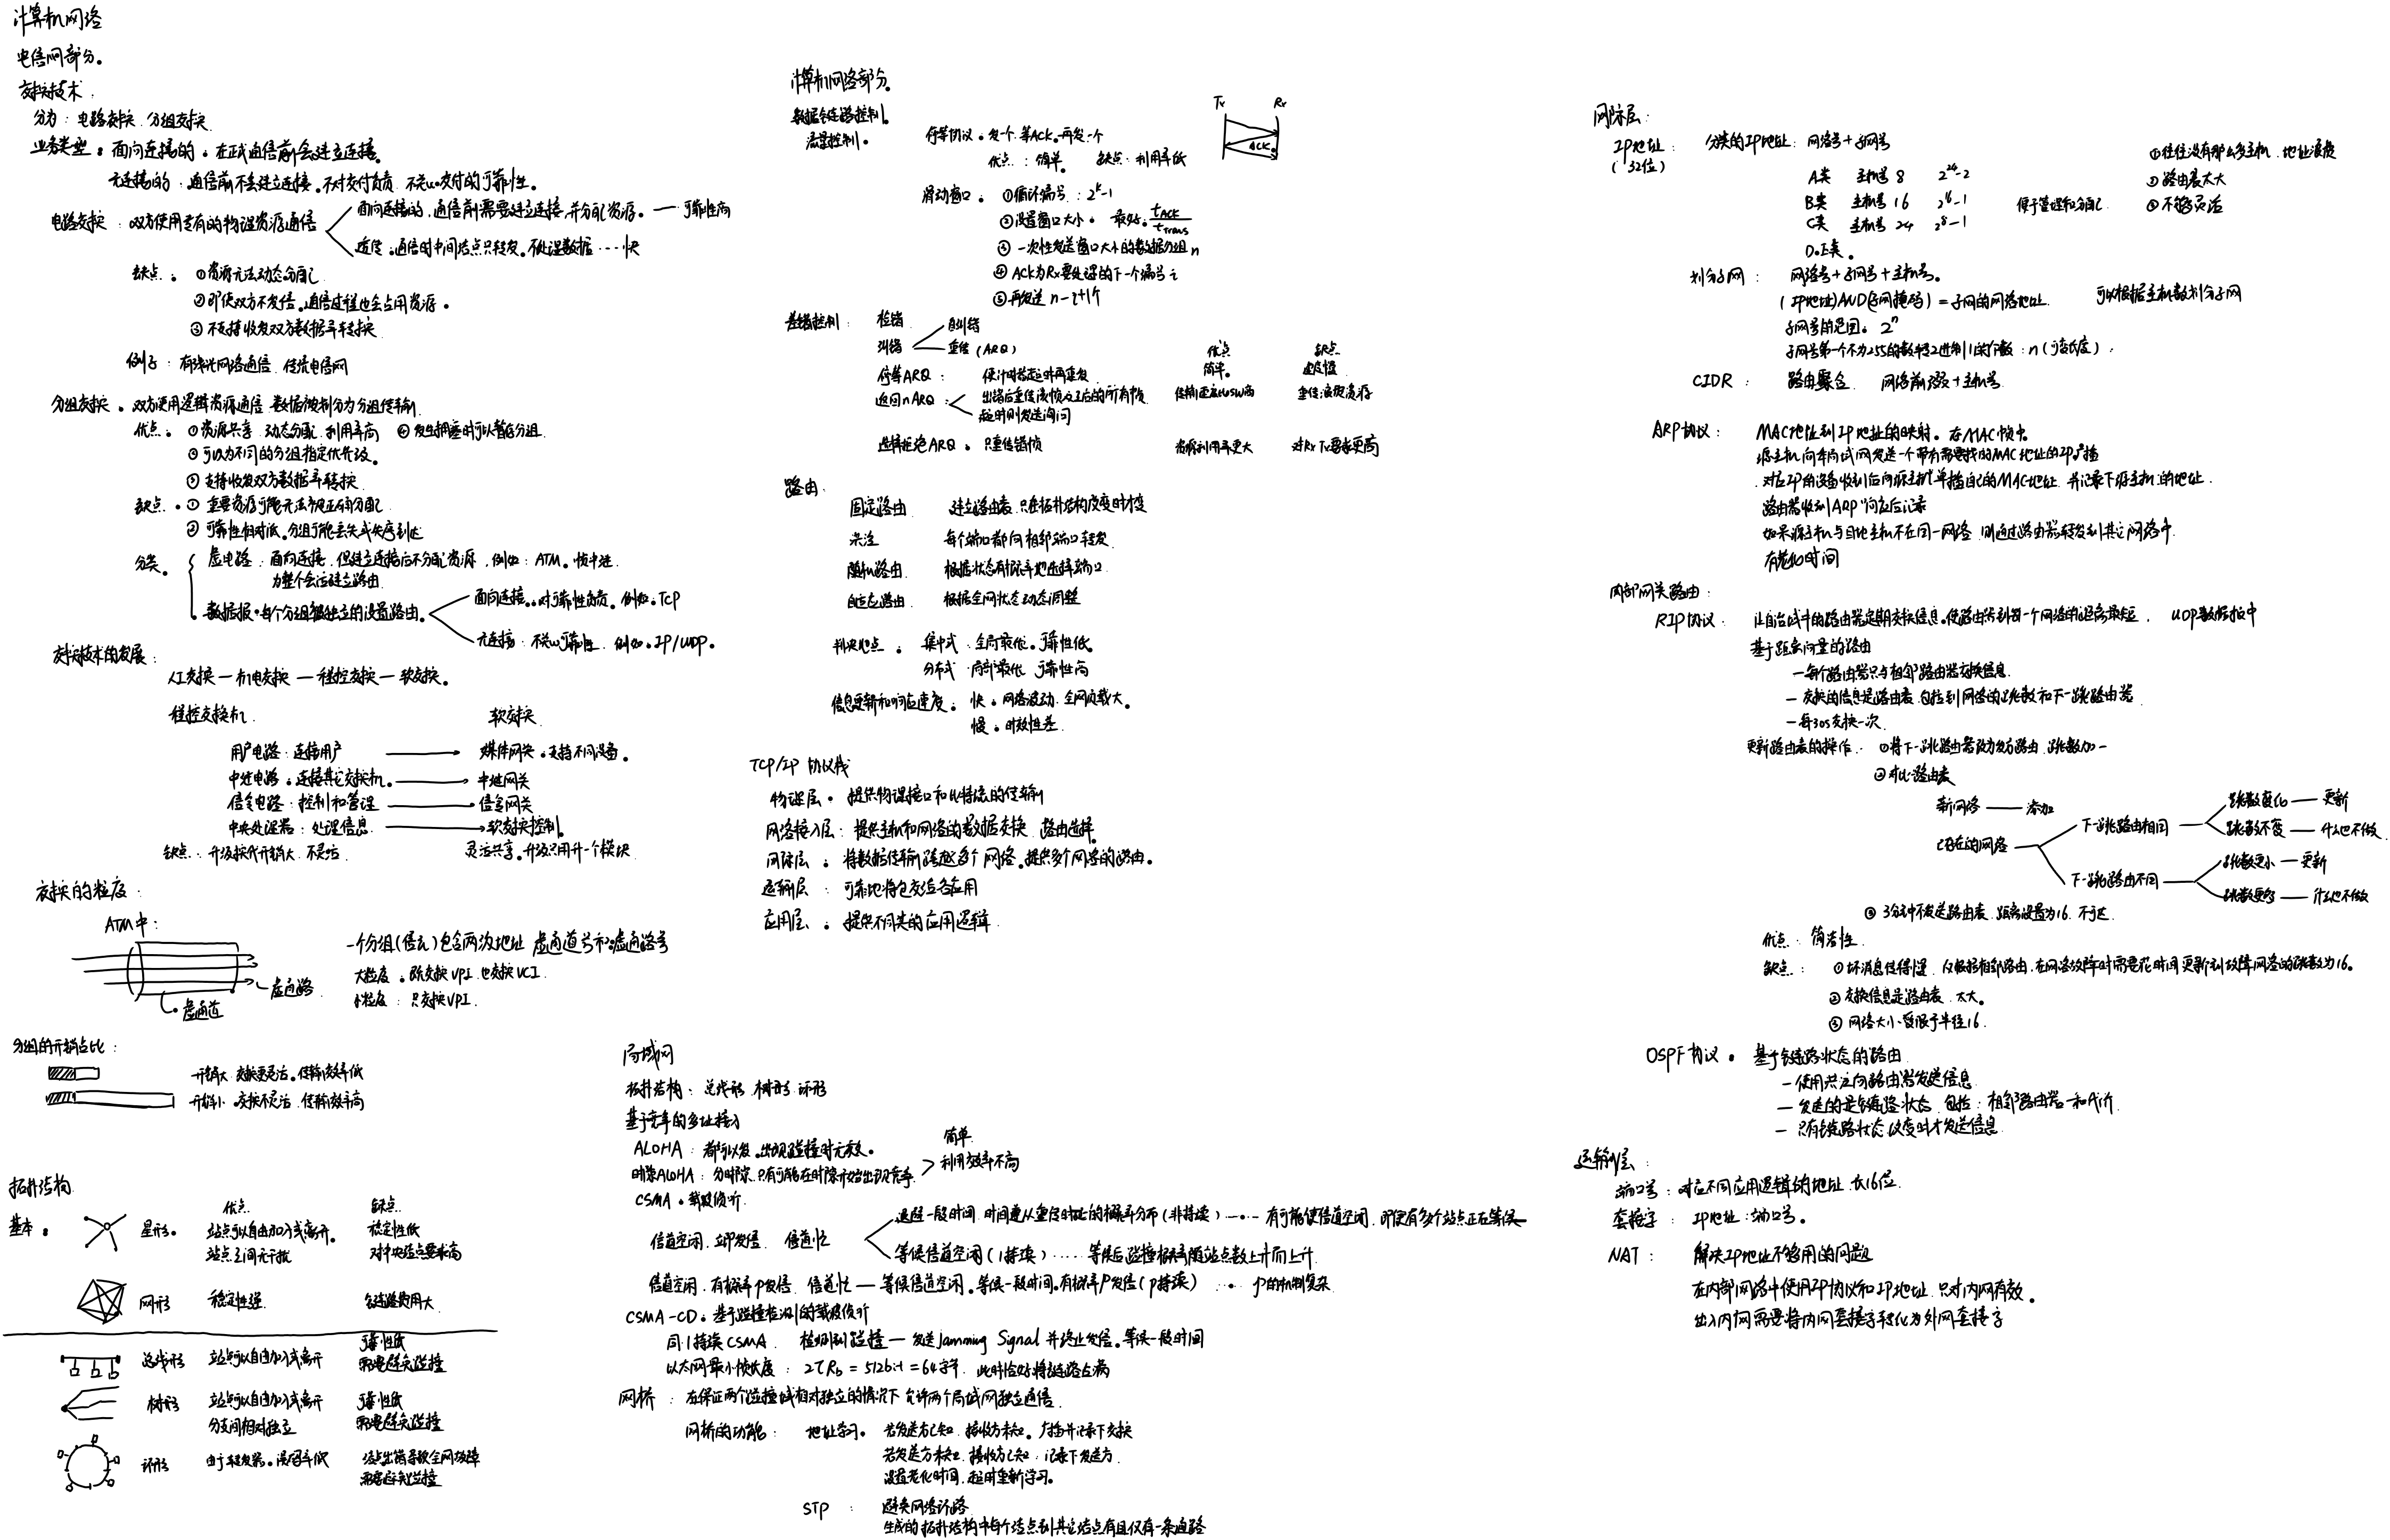 计算机网络
电信网部分。
交换技术：
分为：电路交换、分组交换
业务类型：面向连接的：在正式通信前会建立连接。
无连接的：通信前不会建立连接。不对交付负责，不关心交付的可靠性。
电路交换：双方使用专有的物理资源通信
面向连接的，通信前需要建立连接，并分配资源。— 可靠性高
透传：通信时中间站点只转发，不处理数据 …… 快
缺点：①资源无法动态分配
②即使双方不发信，通信过程也会占用资源。
③不支持收发双方数据率转换
例子：有线光网络通信、传统电信网
分组交换：双方使用逻辑资源通信，数据被划分为分组传输
优点：①资源共享、动态分配、利用率高 ④发生拥塞时可以暂存分组
②可以为不同的分组指定优先级。
③支持收发双方数据率转换
缺点：①重要资源可能无法被正确分配
②可靠性相对低，分组可能丢失或失序到达
分类。
虚电路：面向连接，但建立连接后不分配资源，例如：ATM、帧中继
为整个会话建立路由
数据报：每个分组被独立的设置路由。
面向连接：对可靠性负责。例如：TCP
无连接：不关心可靠性，例如：IP/UDP。
交换技术的发展：
人工交换—机电交换—程控交换—软交换。
程控交换机 软交换
用户电路：连接用户 → 媒体网关：支持不同设备。
中继电路：连接其它交换机。→ 中继网关
信令电路：控制和管理 → 信令网关
中央处理器：处理信息 → 软交换控制。
缺点：升级换代开销大、不灵活 灵活共享，升级只用升一个模块
交换的粒度：
ATM中：
虚通路
虚通道
一个分组（信元）包含两级地址 虚通道号和虚通路号
大粒度：既交换VPI，也交换VCI
小粒度：只交换VPI
分组的开销占比：
开销大，交换更灵活，传输效率低
开销小，交换不灵活，传输效率高
拓扑结构
优点 缺点
基本：
星形。 站点可以自由加入或离开。 稳定性低
站点之间无干扰 对中央站点要求高
网形 稳定性强 链路费用大
总线形 站点可以自由加入或离开 可靠性低
需要避免碰撞
树形 站点可以自由加入或离开 可靠性低
分支间相对独立 需要避免碰撞
环形 由于转发器，误码率低 站点出错导致全网故障
需要避免碰撞
计算机网络部分。
数据链路控制。
流量控制。
停等协议：发一个，等ACK，再发一个
优点：简单。 缺点：利用率低
Tx Rx
ACK
滑动窗口：①循环编号：2^k-1
②设置窗口大小：最好：t_ACK / t_Trans
③一次性发送窗口大小的数据分组 n
④ACK为Rx要处理的下一个编号 i
⑤再发送 n-i+1个
差错控制：检错
纠错
自纠错
重传（ARQ）
优点 缺点
停等ARQ：使计时器超时再重发 简单。 速度慢
返回nARQ：
出错后重传该帧及之后的所有帧 传输速率比SW高 重传浪费资源
超时则发送询问
选择拒绝ARQ：只重传错帧 资源利用率更大 对Rx Tx要求更高
路由：
固定路由 建立路由表，只在拓扑结构改变时才变
洪泛 每个端口都向相邻端口转发
随机路由 根据状态有概率地选择端口
自适应路由 根据全网状态动态调整
判决地点：集中式：全局最优，可靠性低。
分布式：局部最优，可靠性高
信息更新和响应速度：快：网络波动，全网负载大。
慢：时效性差
TCP/IP 协议栈
物理层：提供物理接口和比特流的传输
网络接入层：提供主机和网络的数据交换、路由选择。
网际层：将数据传输跨越多个网络。提供多个网络的路由。
运输层：可靠地将包交给各应用
应用层：提供不同类的应用逻辑
局域网
拓扑结构：总线形、树形、环形
基于竞争的多址接入
ALOHA：都可以发，出现碰撞时无效。
时隙ALOHA：分时隙，只有可能在时隙开始出现竞争
简单
利用效率不高
CSMA：载波侦听
信道空闲，立即发信，信道忙
退避一段时间，时间遵从重传时延的概率分布（非持续）…… 有可能使信道空闲，即便有多个站点正在等候
等候信道空闲（1持续）…… 等候后碰撞概率随站点数上升而上升
信道空闲，有概率p发信，信道忙—等候信道空闲。等候一段时间，有概率p发信（p持续）…… p的机制复杂
CSMA-CD：基于碰撞检测的载波侦听
同1持续CSMA，检测到碰撞—发送Jamming Signal 并终止发信。等候一段时间
以太网最小帧长度：2τR_b = 512bit = 64字节，此时恰好将链路占满
网桥：在保证两个碰撞域相对独立的情况下，允许两个局域网独立通信
网桥的功能：地址学习：若发送方已知，接收方未知，广播并记录下交换
若发送方未知，接收方已知：记录下发送方
设置老化时间，超时重新学习。
STP：避免网络环路
生成的拓扑结构中每个站点到其它站点有且仅有一条通路
网际层：
IP地址：
（32位）
分类的IP地址：网络号+子网号
A类 主机号 8 2^24-2
B类 主机号 16 2^16-1
C类 主机号 24 2^8-1
D、E类。
便于管理和分配
①往往没有那么多主机，地址浪费
②路由表太大
③不够灵活
划分子网：网络号+子网号+主机号。
（IP地址）AND（子网掩码）=子网的网络地址 可以根据主机数划分子网
子网号的范围：2^n
子网号第一个不为255的数转2进制1的个数：n（可变长度）
CIDR：路由聚合 网络前缀+主机号
ARP协议：MAC地址到IP地址的映射。在MAC帧中
源主机向本局域网发送一个带有需要找的MAC地址的IP广播
对应IP的设备收到后向源主机单播自己的MAC地址，并记录下源主机的地址
路由器收到ARP响应后记录
如果源主机与目地主机不在同一网络，则通过路由器转发到其它网络中
有老化时间
内部网关路由：
RIP协议：让自治域中的路由器定期交换信息，使路由器到每一个网络的距离最短， UDP数据报中
基于距离向量的路由
—每个路由器只与相邻路由器交换信息
—交换的信息是路由表，包括到网络的跳数和下一跳路由器
—每30s交换一次
更新路由表的操作：①将下一跳路由器改为发方路由，跳数加一
②对比路由表
新网络 — 添加
已存在的网络
下一跳路由相同
跳数变化 — 更新
跳数不变 — 什么也不做
下一跳路由不同
跳数更小 — 更新
跳数更多 — 什么也不做
③3分钟不发送路由表，距离设置为16，不可达
优点：简洁性
缺点：①坏消息传得慢，仅根据相邻路由，在网络故障时需要花时间更新到故障网络的跳数为16。
②交换信息是路由表，太大。
③网络大小受限于半径16
OSPF协议：基于链路状态的路由
—使用洪泛向路由器发送信息
—发送的是链路状态，包括：相邻路由器和代价
—只有链路状态改变时才发送信息
运输层：
端口号：对应不同应用逻辑的地址，长16位
套接字：IP地址：端口号。
NAT：解决IP地址不够用的问题
在内部网络中使用IP协议和IP地址，只对内网有效。
出入内网需要将内网套接字转化为外网套接字